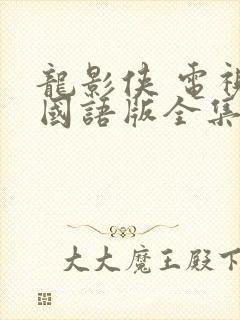 龍影俠 電視
國語版全集
大大魔王殿下